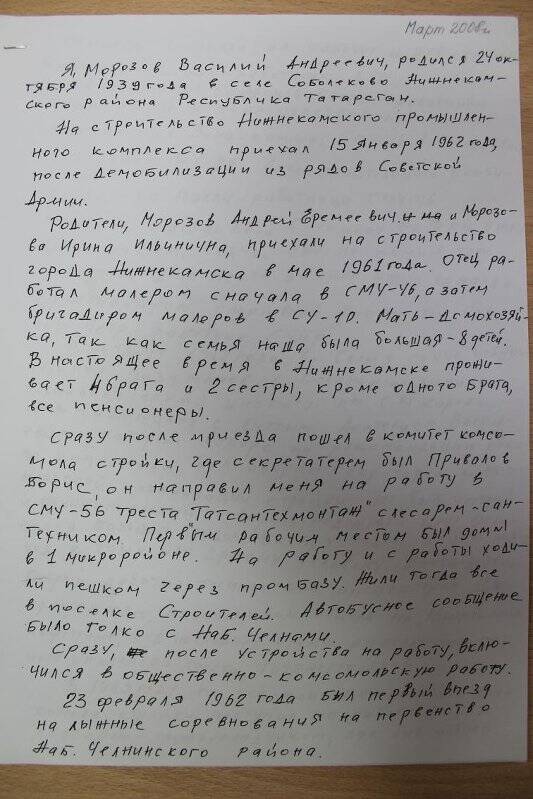 Март 2008г
Я, Морозов Василий Андреевич, родился 24 ок-
тября 1939 года в селе Соболеково Нижнекам-
ского района Республика Татарстан.
На строительство Нижнекамского промышлен-
ного комплекса приехал 15 января 1962 года,
после демобилизации из рядов Советской
Армии.
Родители, Морозов Андрей Еремеевич и на и Морозо-
ва Ирина Ильинична, приехали на строительство
города Нижнекамска в мае 1961 года. Отец ра-
ботал малером сначала в СМУ-46, а затем
бригадиром малеров в СУ-10. Мать-домохозяй-
ка, так как семья наша была большая-8 детей.
В настоящее время в Нижнекамске прожи-
вает 4 брата и 2 сестры, кроме одного брата,
все пенсионеры.
Сразу после приезда пошел в комитет комсо-
мола стройки, где секретатерем был Привалов
Борис, он направил меня на работу в
СМУ-56 треста "Татсантехмонтаж" слесарем-сан-
техником. Первым рабочим местом был домы
в 1 микроройоне. На работу и с работы ходи-
ли пешком через промбазу. Жили тогда все
в поселке Строителей. Автобусное сообщение
было толко с Наб. Челнами.
Сразу, после устройства на работу, вклю-
чился в общественно-комсомольскую работу.
23 февраля 1962 года был первый выезд
на лыжные соревнования на первенство
Наб. Челнинского района.